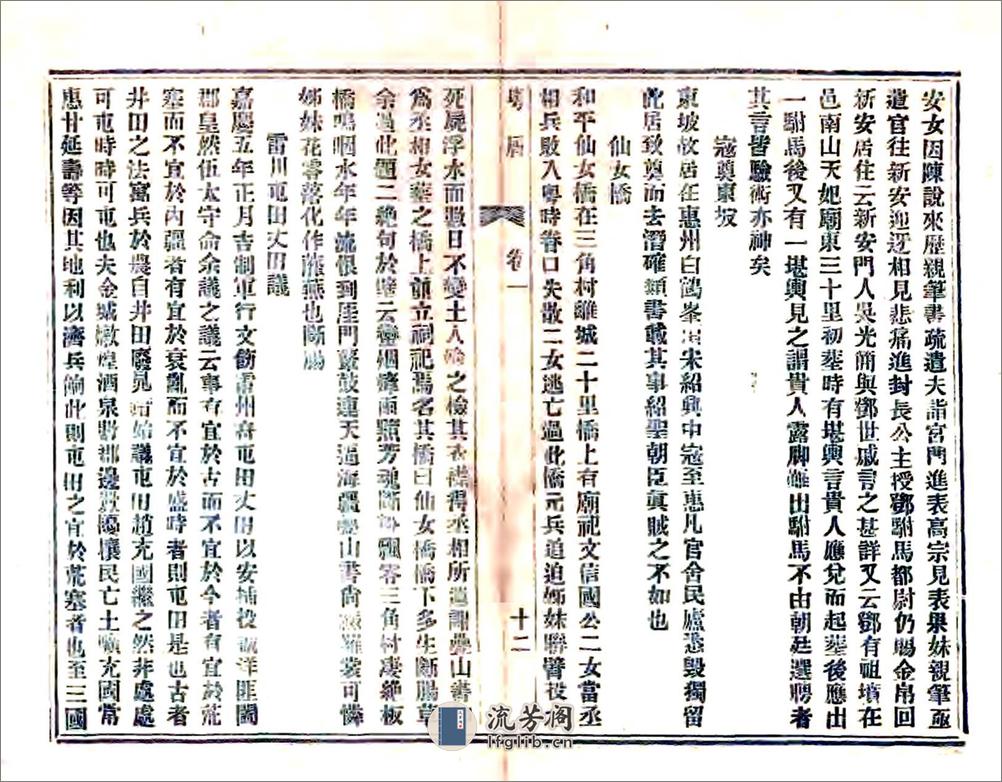 安女因陳說來歷親筆書疏遣夫詣宮門進表高宗見表果妹親筆亟
遣官往新安迎迓相見悲痛進封長公主授鄧駙馬都尉仍賜金帛回
新安居住云新安門人吳光簡與鄧世戚言之甚詳又云鄧有祖墳在
邑南山天妃廟東三十里初塟時有堪輿言貴人應兌而起塟後應出
一駙馬後又有一堪輿見之謂貴人露脚雖出駙馬不由朝廷選聘者
其言皆驗術亦神矣
寇奠東坡
東坡故居在惠州白鶴峯宋紹興中寇至惠凡官舍民廬悉毀獨留
此居致奠而去潛確類書載其事紹聖朝臣眞賊之不如也
仙女橋
和平仙女橋在三角村離城二十里橋上有廟祀文信國公二女當丞
相兵敗入粵時眷口失散二女逃亡過此橋元兵迫迫姊妹聯臂投
粵屑
卷一
十二
死屍浮水而數日不變土人之檢其衣得丞相所遺謝疊山書
爲丞相女塟之橋上並立祠祀焉名其橋曰仙女橋橋下多生斷腸草
余過此題二絶句於壁云蠻烟瘴雨黯芳魂斷飄零三角村凄絶板
橋鳴咽水年年流恨到厓門鼙鼓連天過海疆疊山書尚羅裳可憐
姊妹花零落化作蘼蕪也斷腸
雷川屯田丈田議
嘉慶五年正月吉制軍行文飭雷州府屯田丈田以安插投誠洋匪闔
郡皇然伍太守命余議之議云事有宜於古而不宜於今者有宜於荒
塞而不宜於內疆者有宜於衰亂而不宜於盛時者則屯田是也古者
井田之法寓兵於農自井田廢晁始議屯田趙充國繼之然非處處
可屯時時可屯也夫金城燉煌酒泉郡邊民亡土曠充國常
惠甘延壽等因其地利以濟兵餉此則屯田之宜於荒塞者也至三國
流芳閣
lfglib.cn